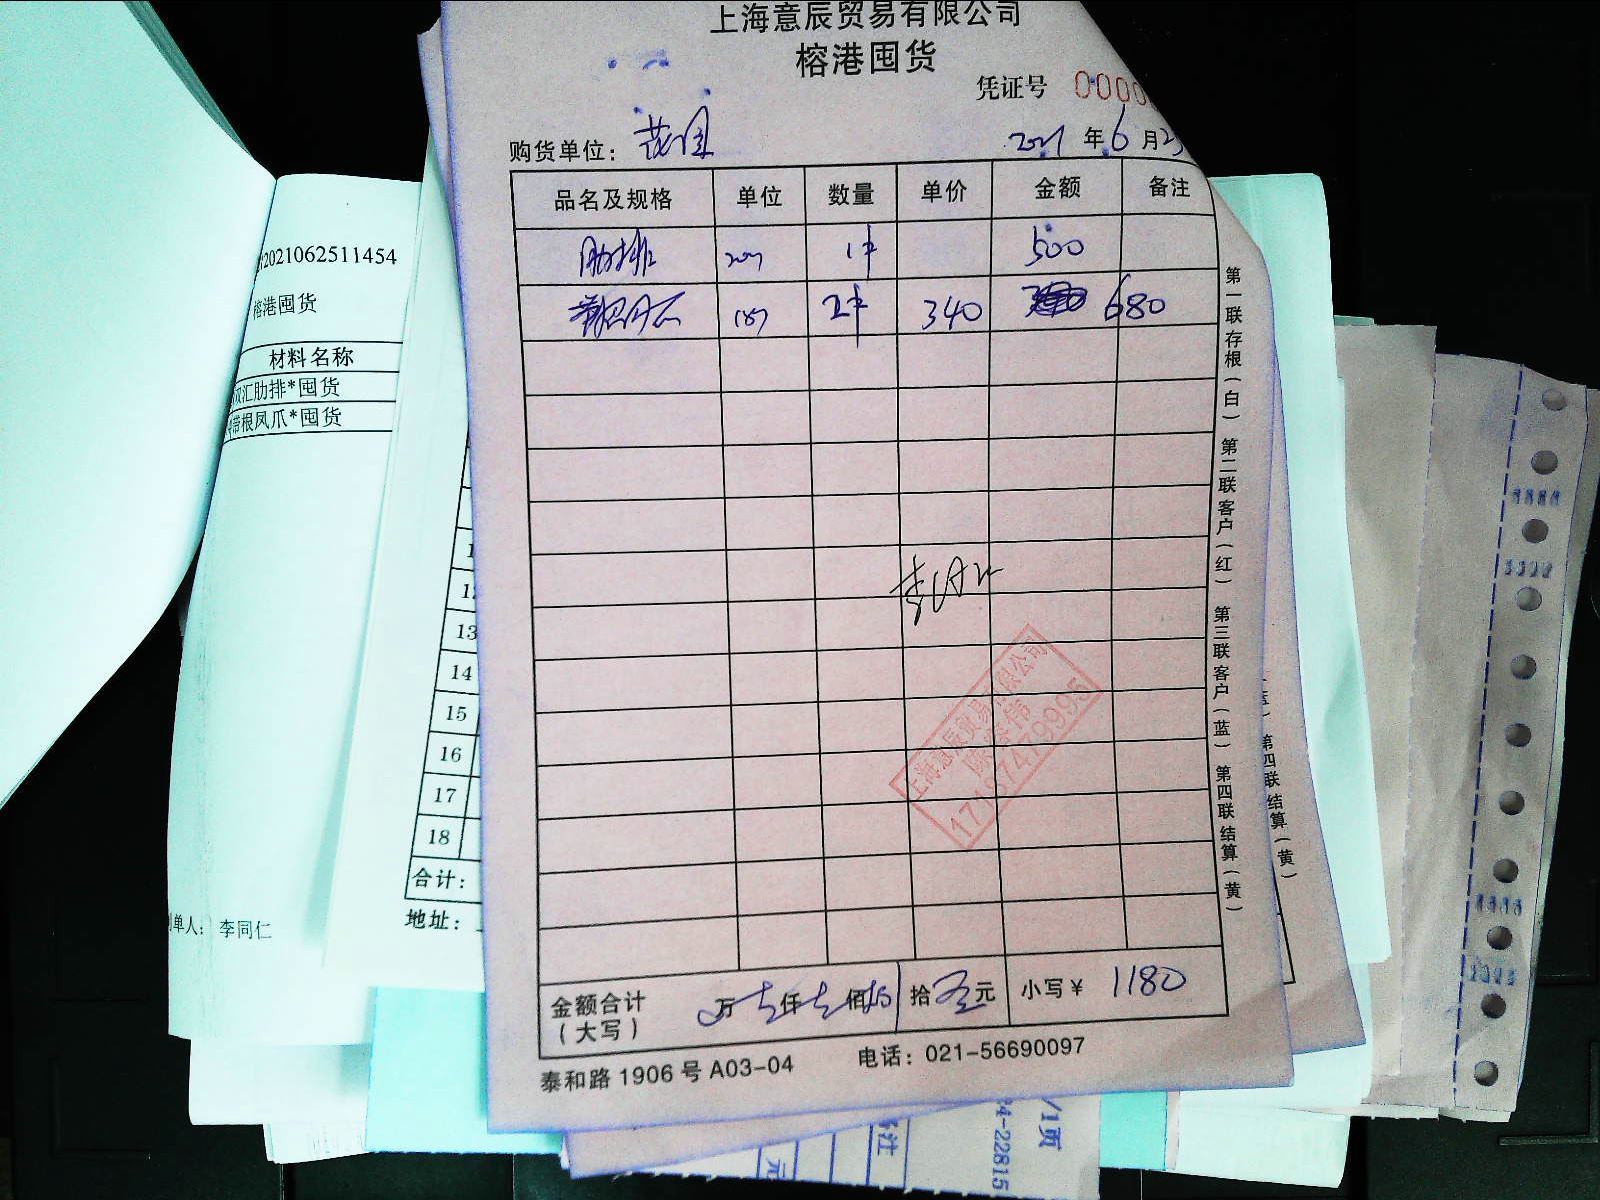 上海意辰贸易有限公司
榕港囤货
凭证号 0000
购货单位：
2021 年 6 月 25
品名及规格 单位 数量 单价 金额 备注
肋排 1件 500
2件 340 680
金额合计 万 仟 佰 拾 元 小写￥ 1180
（大写）
泰和路1906号A03-04 电话：021-56690097
第一联存根（白） 第二联客户（红） 第三联客户（蓝） 第四联结算（黄）
上海意辰贸易有限公司
17187479995
2021062511454
榕港囤货
材料名称
双汇肋排*囤货
带根凤爪*囤货
制单人： 李同仁
13
14
15
16
17
18
合计：
地址：
第四联结算（黄）
/1页
4-22815
备注
元